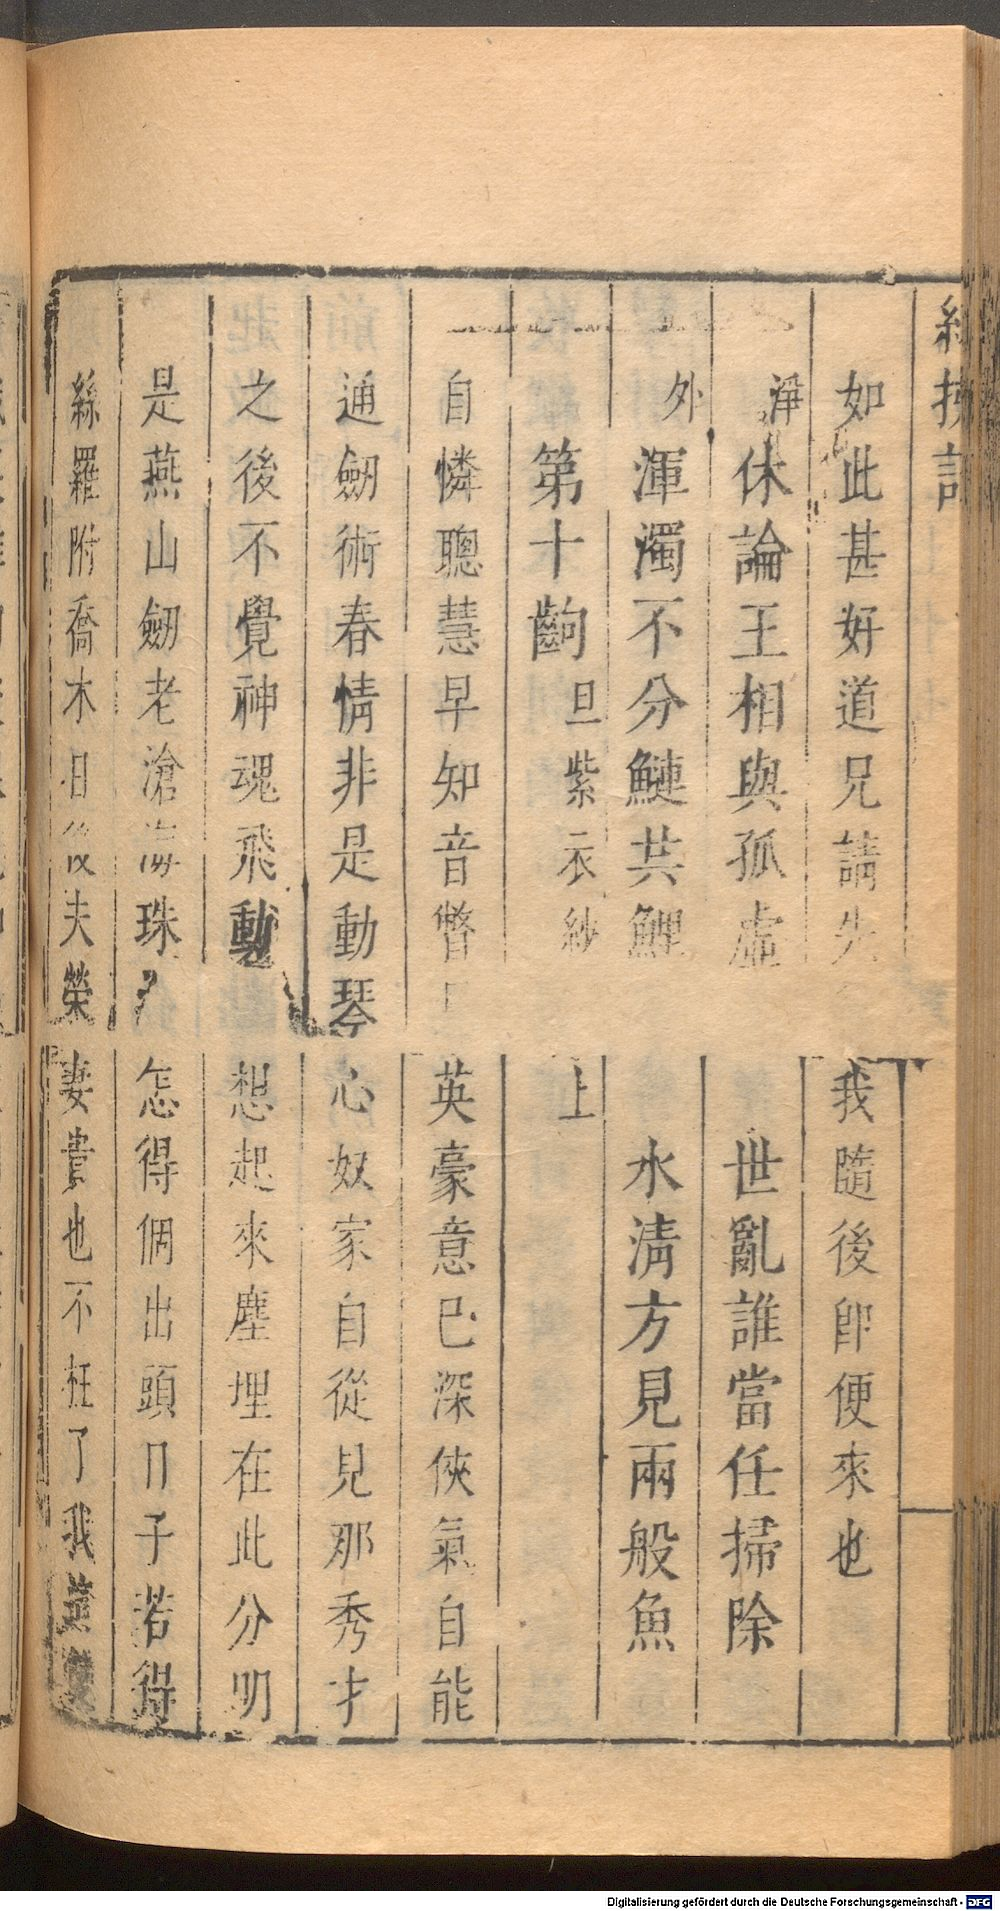 紅拂記
如此甚好道兄請先我隨後即便來也
淨休論王相與孤虛世亂誰當任掃除
外渾濁不分鰱共鯉水清方見兩般魚
第十齣 旦紫衣紗上
自憐聰慧早知音瞥英豪意已深俠氣自能
通劒術春情非是動琴心奴家自從見那秀才
之後不覺神魂飛動想起來塵埋在此分明
是燕山劒老滄海珠怎得個出頭日子若得
絲羅附喬木日後夫榮妻貴也不枉了我這雙
Digitalisierung gefördert durch die Deutsche Forschungsgemeinschaft - DFG